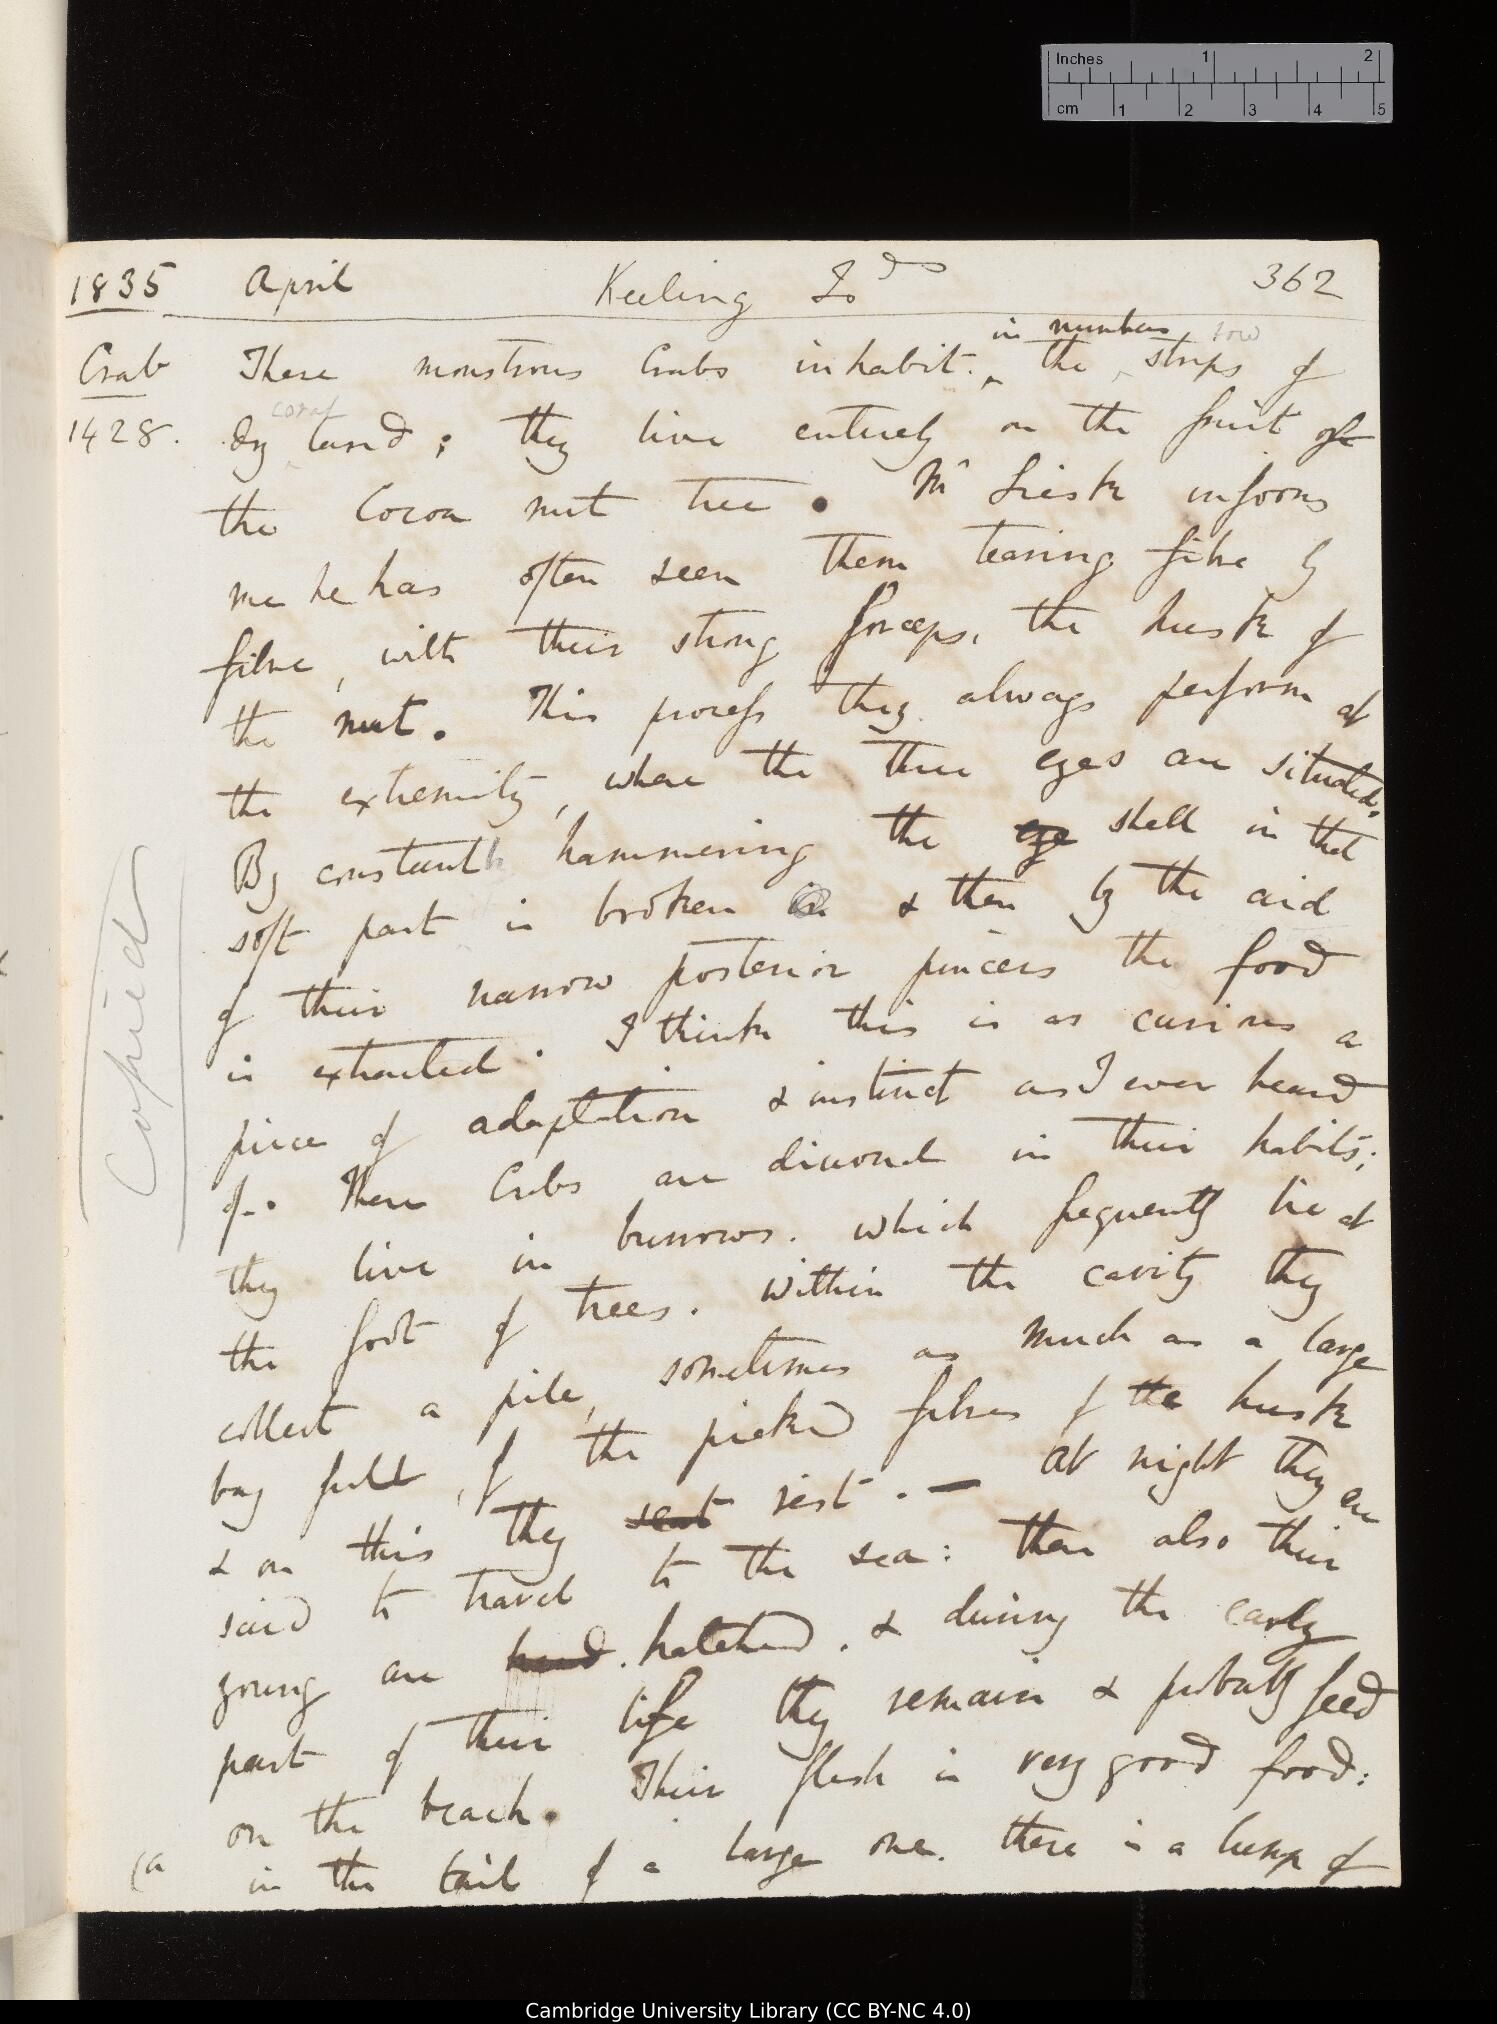 Inches 1 2
cm 1 2 3 4 5
1835 April Keeling Is 362
in numbers, low
Crab These monstrous Crabs inhabit. the strips of
coral
1428. dry land; they live entirely on the fruit of
the Cocoa nut tree. Mr Liesk informs
me he has often seen them tearing fibre by
fibre, with their strong forceps, the husk of
the nut. This process they always perform at
the extremity, where the three eyes are situated.
By constant hammering the eye shell in that
soft part is broken in & then by the aid
of their narrow posterior pincers the food
is extracted. I think this is as curious a
piece of adaptation & instinct as I ever heard
of.. These Crabs are diurnal in their habits;
they live in burrows. which frequently lie at
the foot of trees. Within the cavity they
collect a pile, sometimes as much as a large
bag full, of the picked fibres of the husk
& on this they rest. — At night they are
said to travel to the sea: there also their
young are hatched. & during the early
part of their life they remain & probably feed
on the beach. Their flesh is very good food:
(a in the tail of a large one. there is a lump of
Copied
Cambridge University Library (CC BY-NC 4.0)